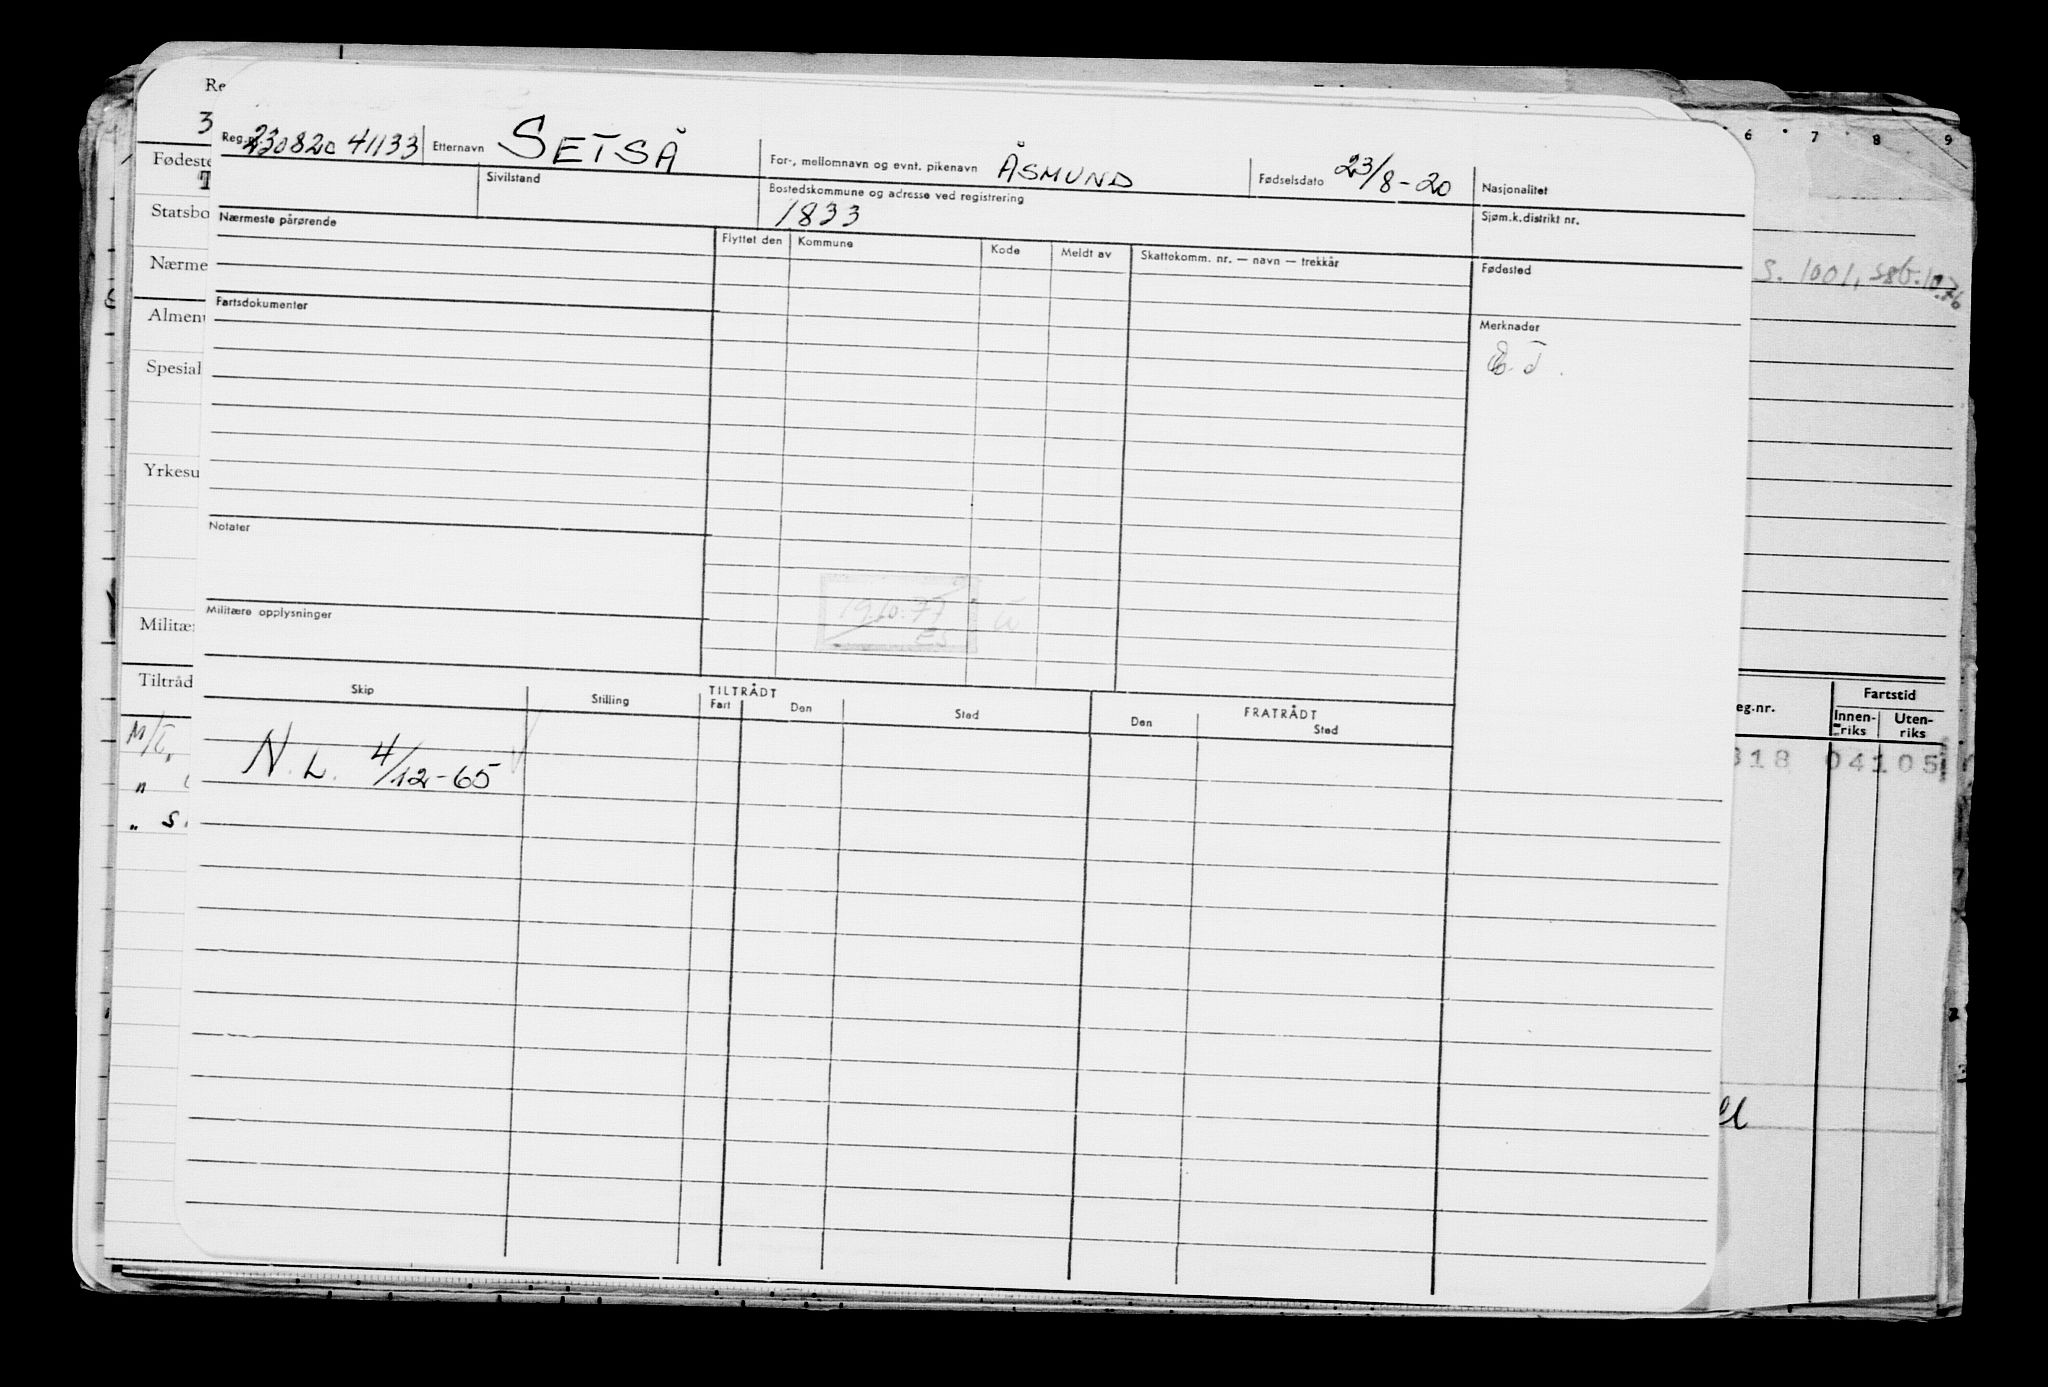 Reg.nr. 230820 41133 Etternavn SETSÅ For-, mellomnavn og evnt. pikenavn ÅSMUND Fødselsdato 23/8-20 Nasjonalitet
Sivilstand Bostedskommune og adresse ved registrering Sjøm.k.distrikt nr.
1833
Nærmeste pårørende Flyttet den Kommune Kode Meldt av Skattekomm. nr. — navn — trekkår Fødested
Fartsdokumenter Merknader
Notater
19.10.77
ES
Militære opplysninger
Skip Stilling TILTRÅDT Fart Den Sted FRATRÅDT Den Sted
N.L. 4/12-65
Re
3
Fødeste
Statsbo
Nærme
Almen
Spesial
Yrkesu
Militær
Tiltråd
M/T.
"
" S.
6 7 8 9
S. 1001,
eg.nr. Fartstid
Innen-riks Uten-riks
318 04105